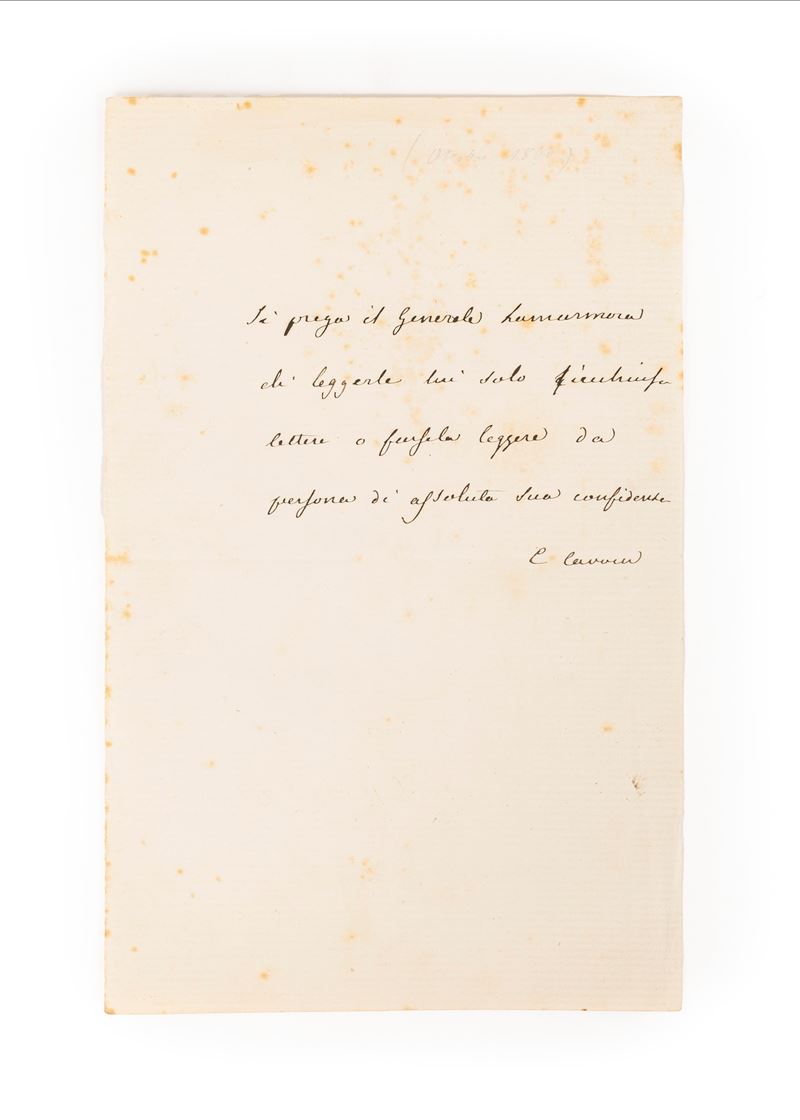 Si prega il Generale Lamarmora
di leggerle lui solo
lettere o farsela leggere da
persona di assoluta sua confidenza
C Cavour